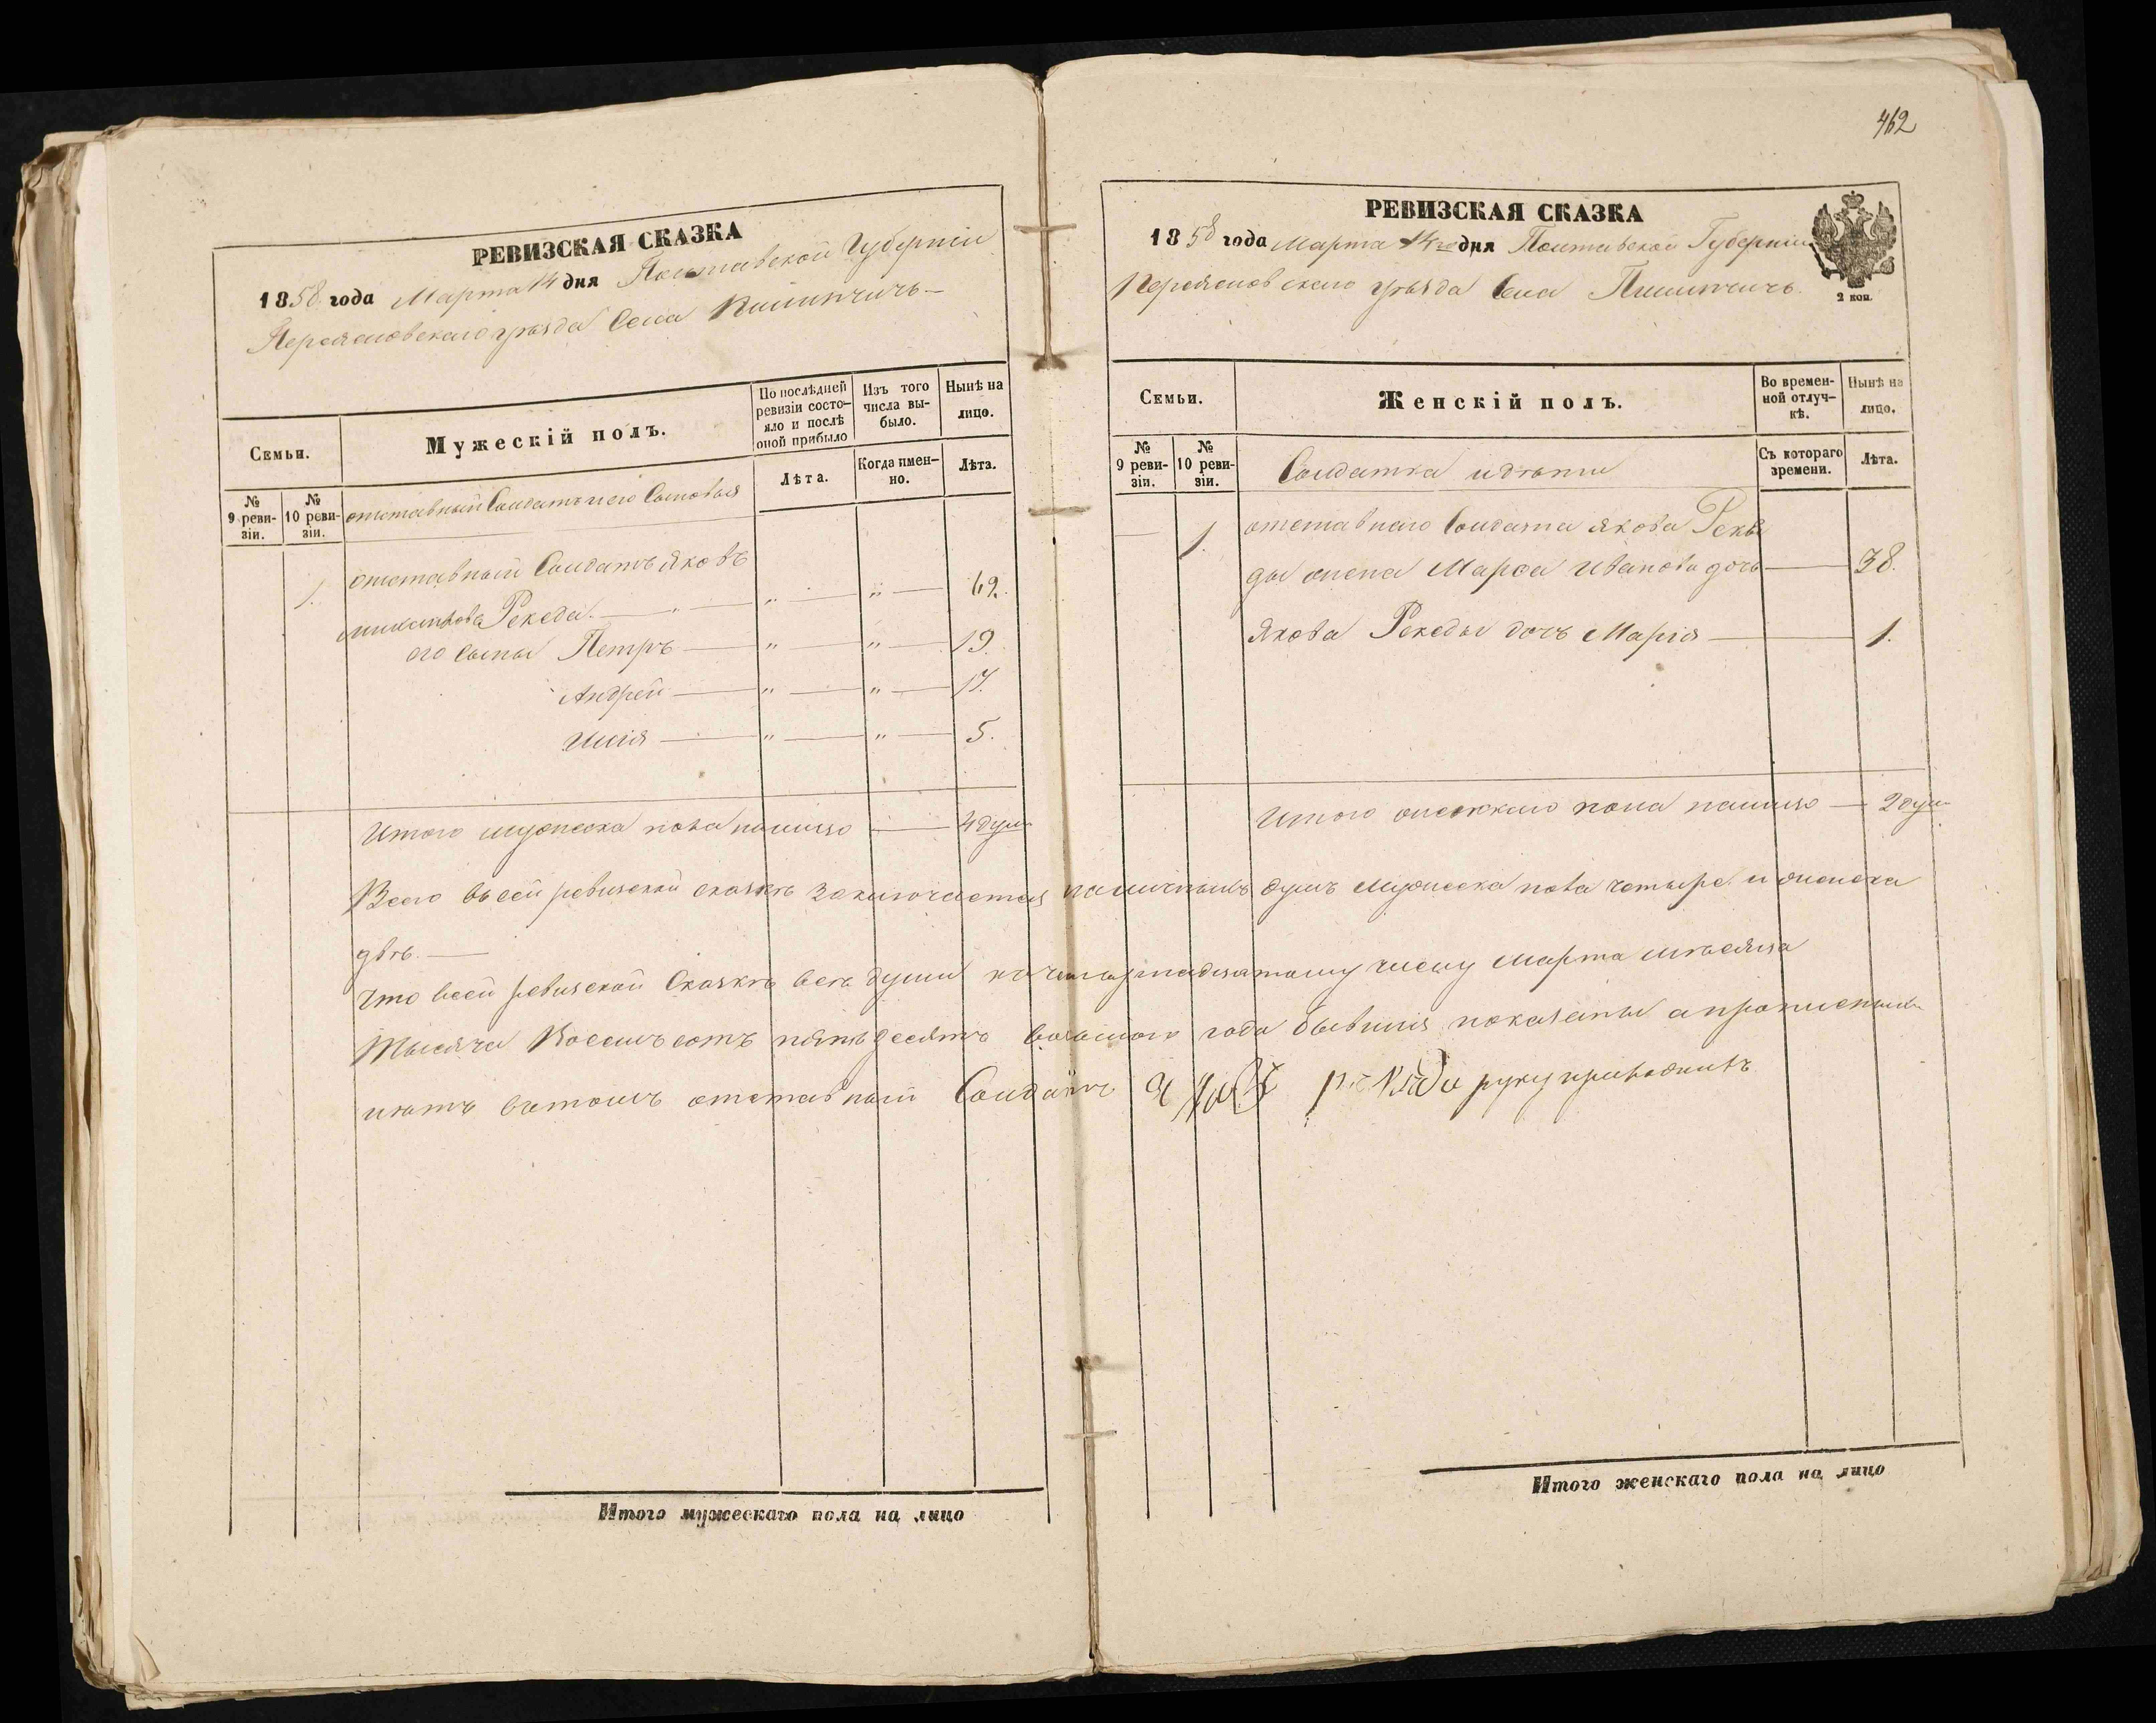 462
РЕВИЗСКАЯ СКАЗКА
1858 года Марта 14 дня Полтавской Губерніи
Переясловскаго уѣзда Села Пилипчичь
Семьи.
Мужескій полъ.
По послѣдней ревизіи состояло и послѣ оной прибыло
Изъ того числа выбыло.
Нынѣ на лицо.
№ 9 ревизіи.
№ 10 ревизіи.
отставный Солдатъ и его Сыновья
Лѣта.
Когда именно.
Лѣта.
1. отставный Солдатъ Яковъ
Рекеда. — " — " — 62.
его сыны Петръ — " — " — 19.
Андрей — " — " — 17.
Илія — " — " — 5.
Итого мужеска пола налицо — 4 душ
РЕВИЗСКАЯ СКАЗКА
1858 года Марта 14го дня Полтавской Губерніи
Переясловскаго уѣзда Села Пилипчичь.
2 коп.
Семьи.
Женскій полъ.
Во временной отлучкѣ.
Нынѣ на лицо.
№ 9 ревизіи.
№ 10 ревизіи.
Солдатка и дѣти
Съ котораго времени.
Лѣта.
— 1. отставнаго Солдата Якова Реке
ды жена Марфа Иванова дочь — 38.
Якова Рекеды дочь Марія — 1.
Итого женскаго пола налицо — 2 душ
Всего въ сей ревизской сказкѣ заключается наличныхъ душъ мужеска пола четыре и женска
двѣ. —
Что всей ревизской Сказкѣ всѣ души по четырнадцатому числу Марта мѣсяца
Тысяча Восемьсотъ пятьдесятъ восьмого года бывшія показаны а прописныхъ
нѣтъ вътомъ отставный Солдатъ руку приложилъ
Итого мужескаго пола на лицо
Итого женскаго пола на лицо